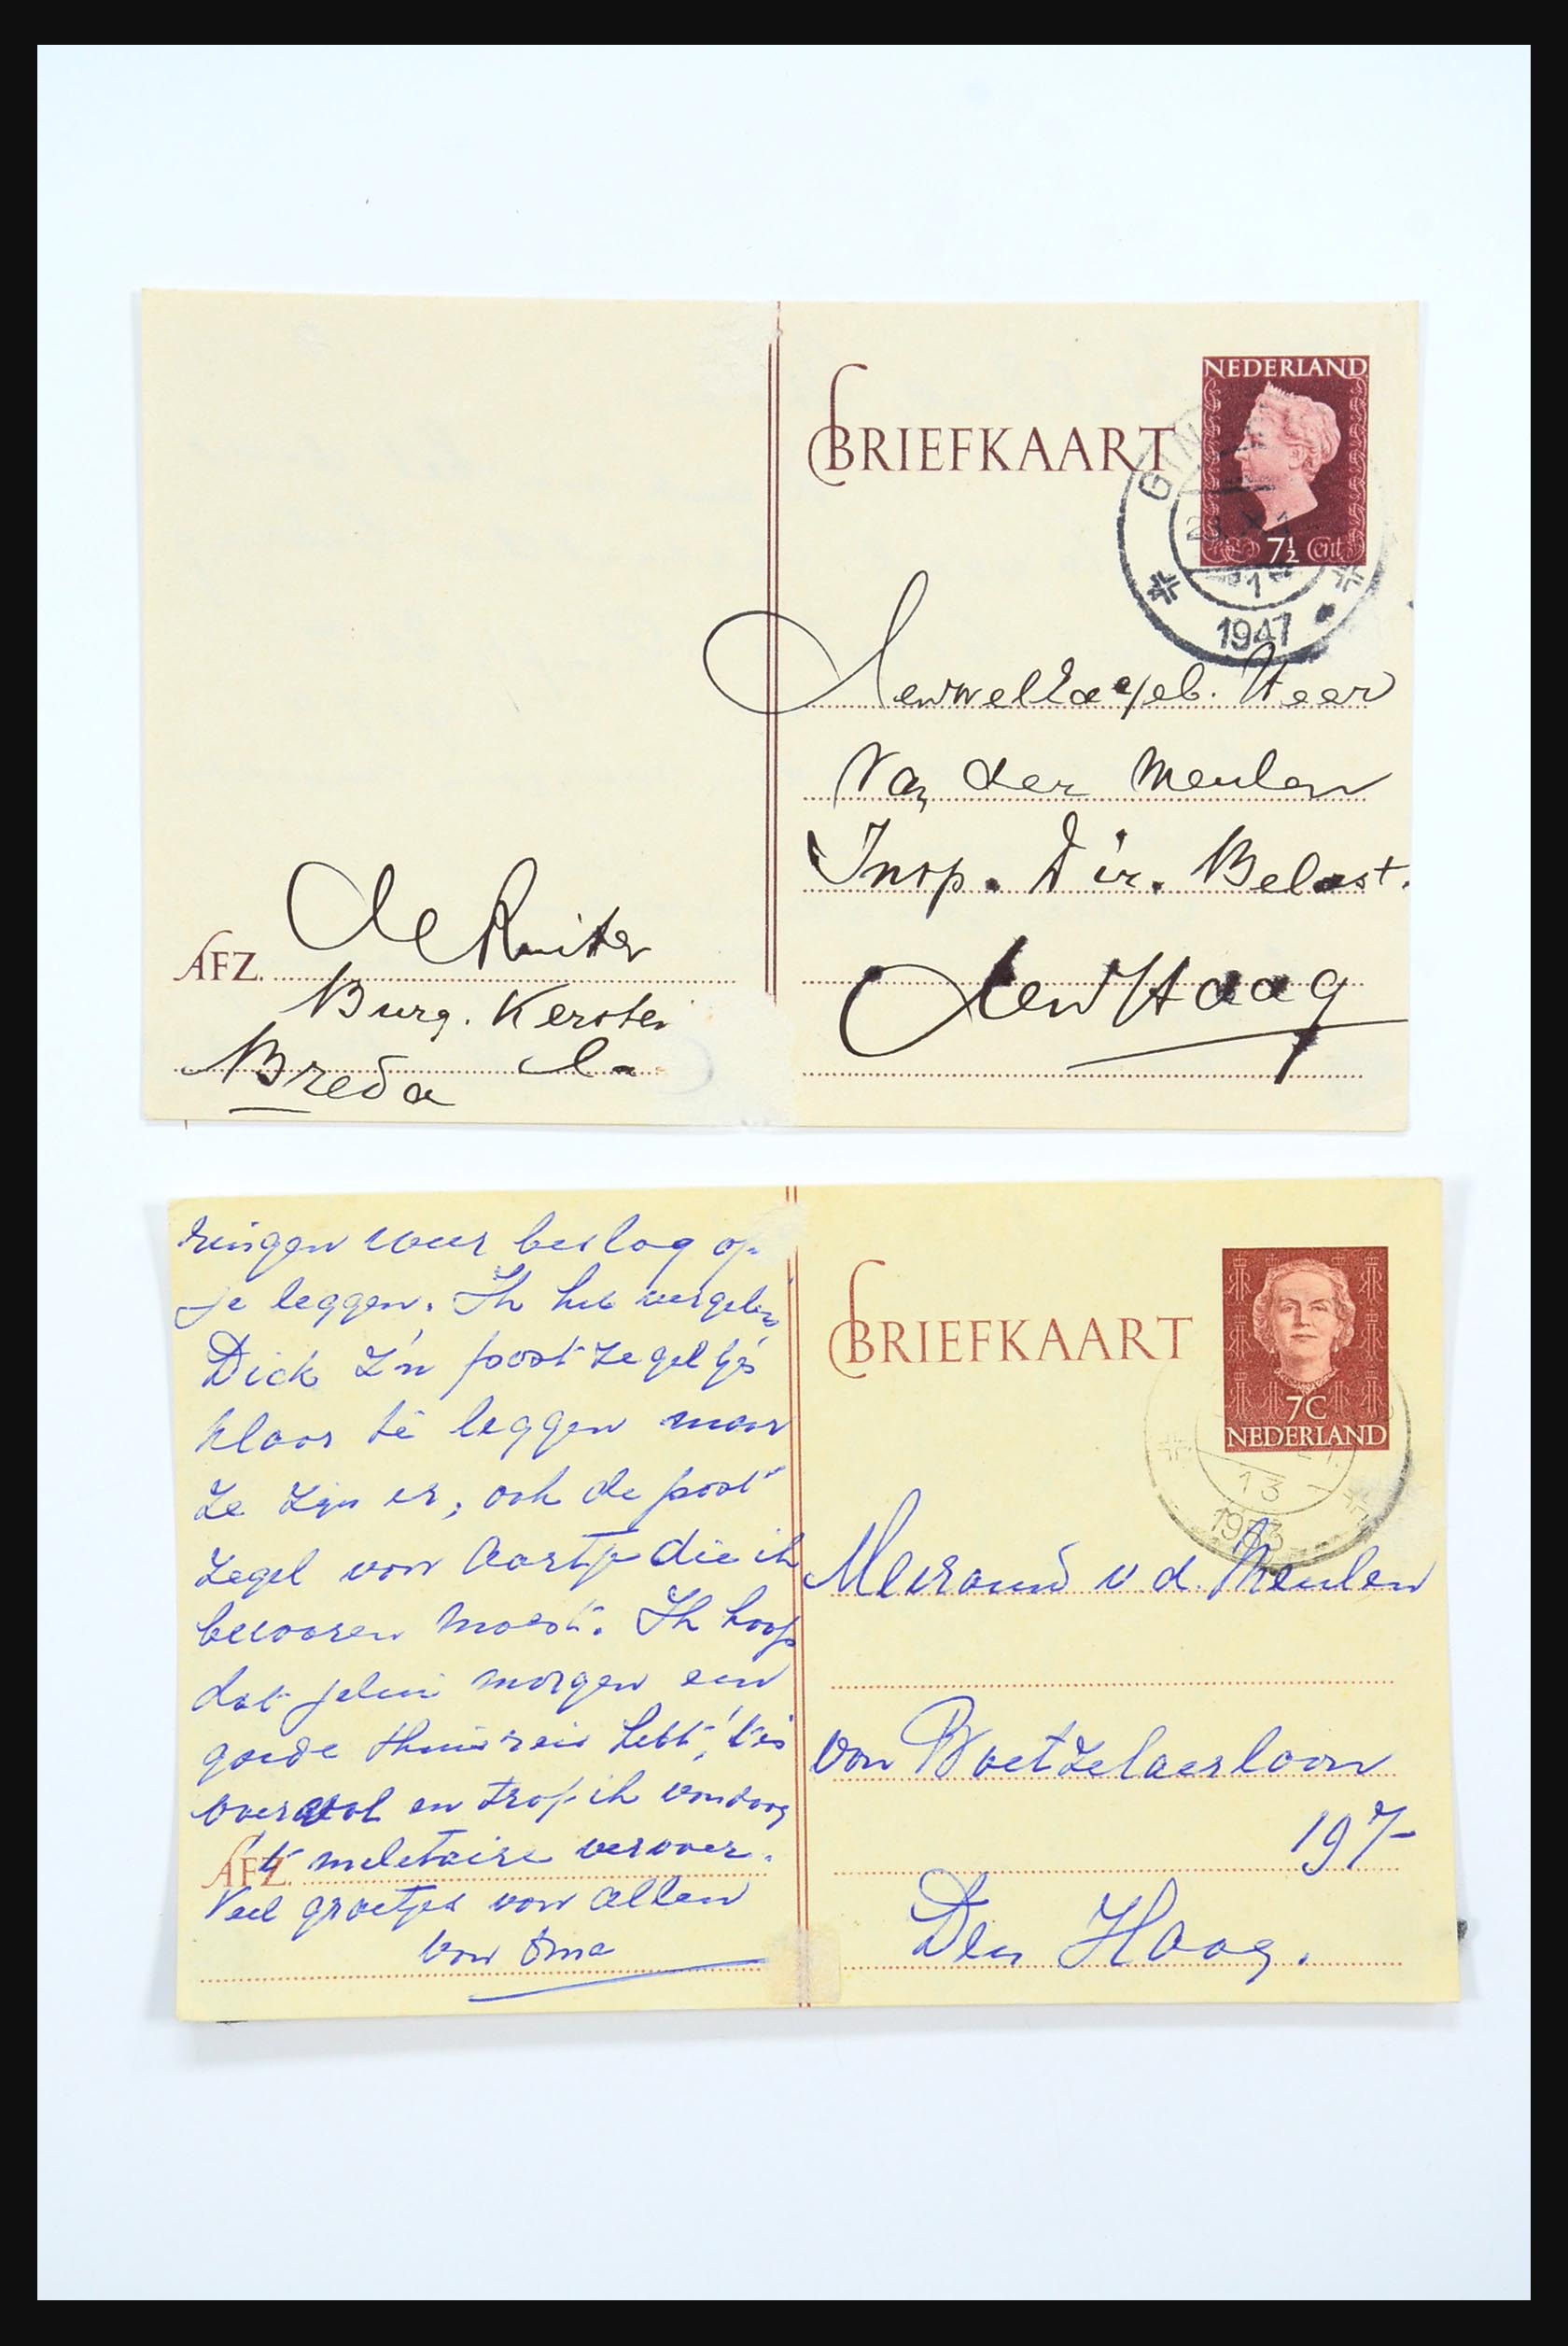 NEDERLAND
BRIEFKAART
7½ Cent
1
1947
Heer
van der Meulen
Insp. Dir. Belast.
den Haag
de Ruiter
AFZ.
Burg. Kersten
Breda L.
ringen weer beslag op
je leggen. Ik heb vergeten
Dick z'n postzegeltjes
klaar te leggen maar
ze zijn er, ook de post
zegel van Aartje die ik
bewaren moest. Ik hoop
dat jelui morgen een
goede thuisreis hebt, 't is
overal en trof ik vandaag
AFZ. 't militaire vervoer.
Veel groetjes van allen
van Oma
BRIEFKAART
7C
NEDERLAND
13
1953
Mevrouw v. d. Meulen
van Boetzelaerlaan
197
Den Haag.